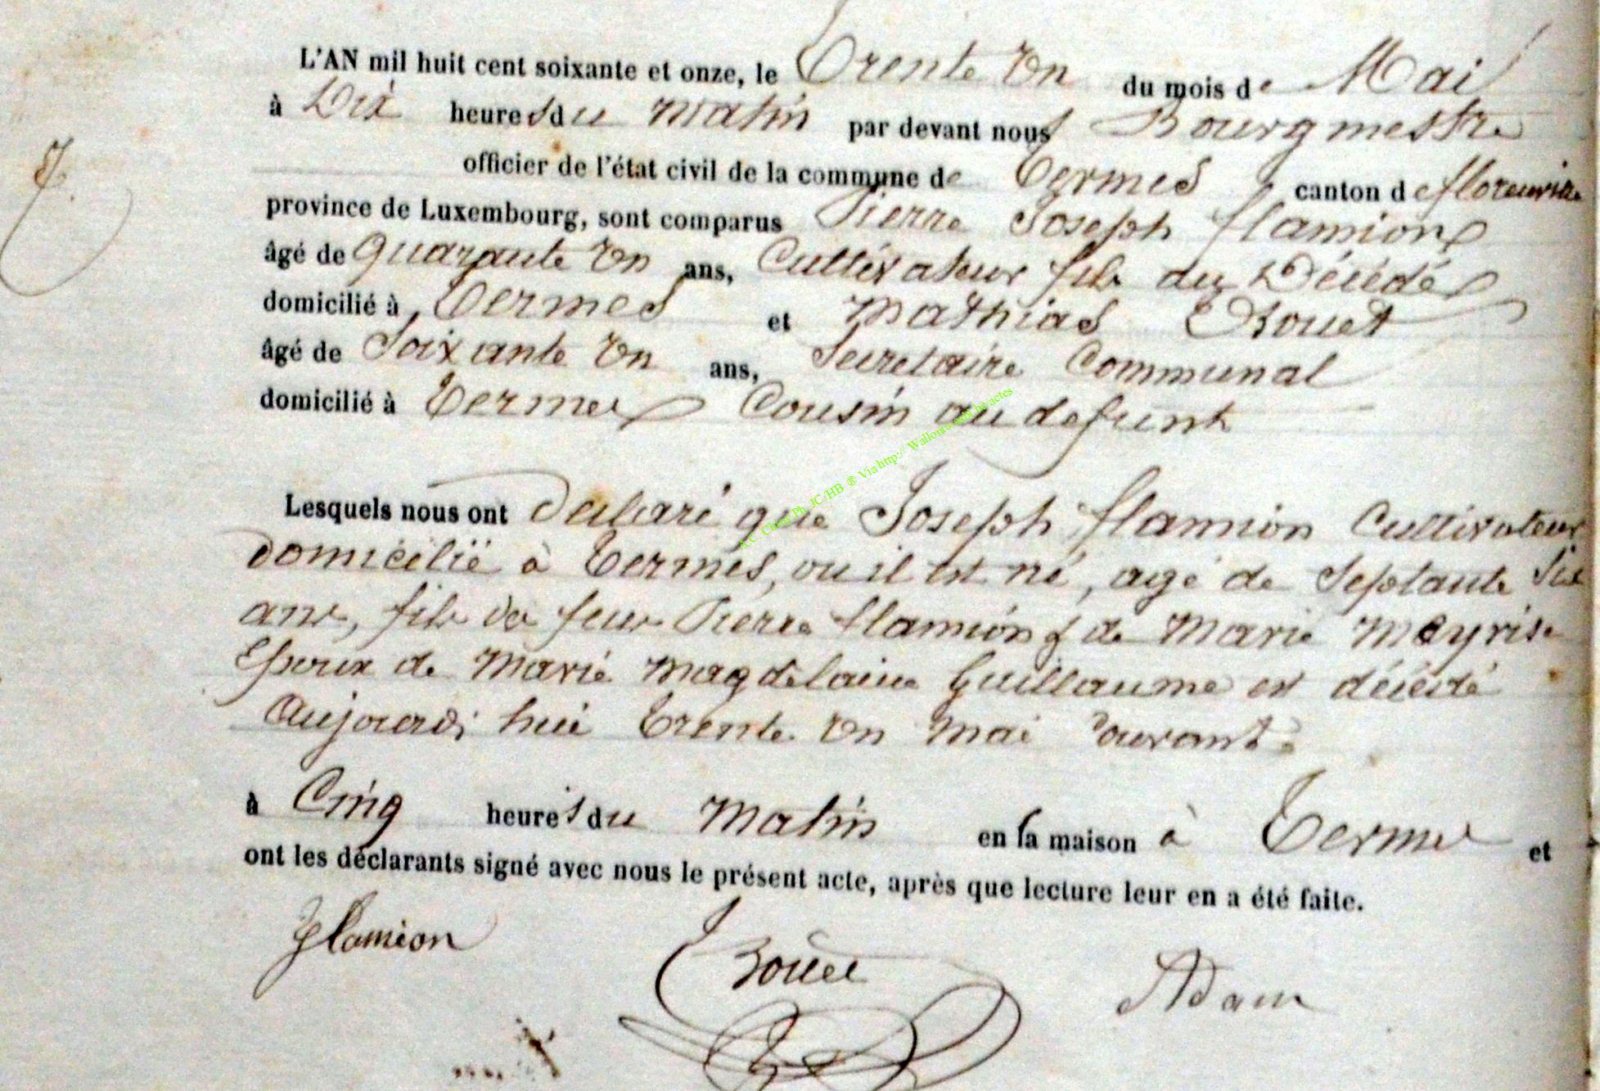 L'AN mil huit cent soixante et onze, le Trente Un du mois de Mai
à Dix heures du Matin par devant nous Bourgmestre
7.
officier de l'état civil de la commune de Termes canton de florenville
province de Luxembourg, sont comparus Pierre Joseph flamion
âgé de Quarante Un ans, Cultivateur fils du Décédé
domicilié à Termes et Mathias Bouet
âgé de Soixante Un ans, Secretaire Communal
domicilié à Termes Cousin au defunt
Lesquels nous ont declaré que Joseph flamion Cultivateur
domicilié à Termes, ou il est né, agé de Septante Six
ans, fils de feu Pierre flamion & de Marie Meyrise
Epoux de Marie Magdelaine Guillaume est décédé
Aujourd'hui Trente Un Mai Courant.
à Cinq heures du Matin en sa maison à Termes et
ont les déclarants signé avec nous le présent acte, après que lecture leur en a été faite.
flamion Bouet Adam